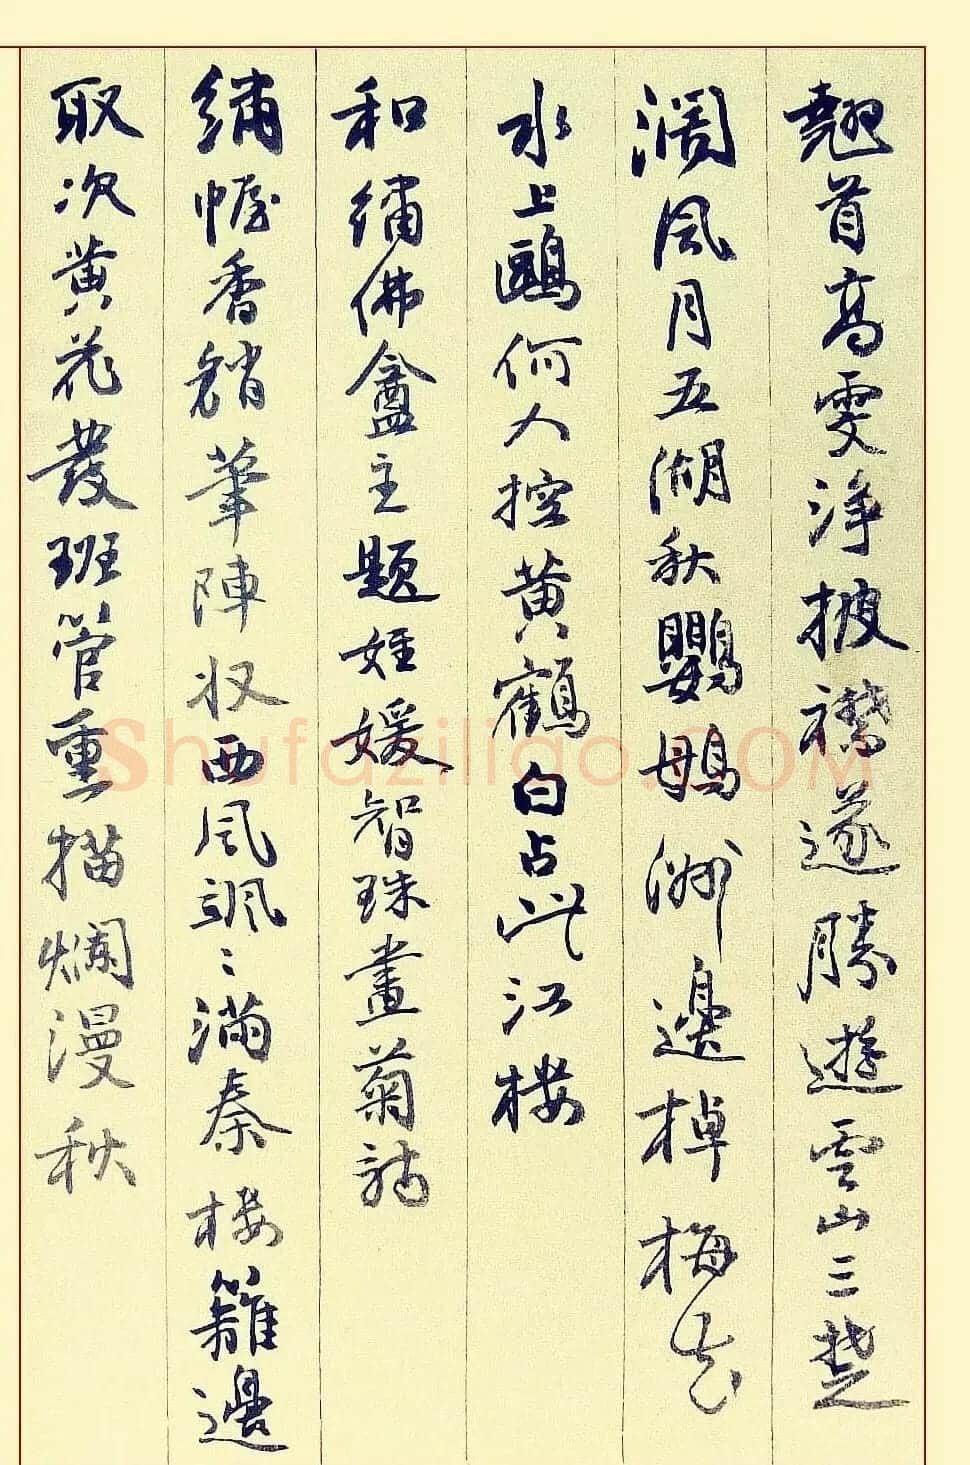 翹首高雯淨披襟遂勝遊雲山三楚
濶風月五湖秋鸚鵡洲邊棹梅花
水上鷗何人控黃鶴白占此江樓
和繡佛盦主題姪媛智珠畫菊詩
繡幄香銷筆陣收西風颯〻滿秦樓籬邊
取次黃花發班管重描爛漫秋
Shufaziliao.COM